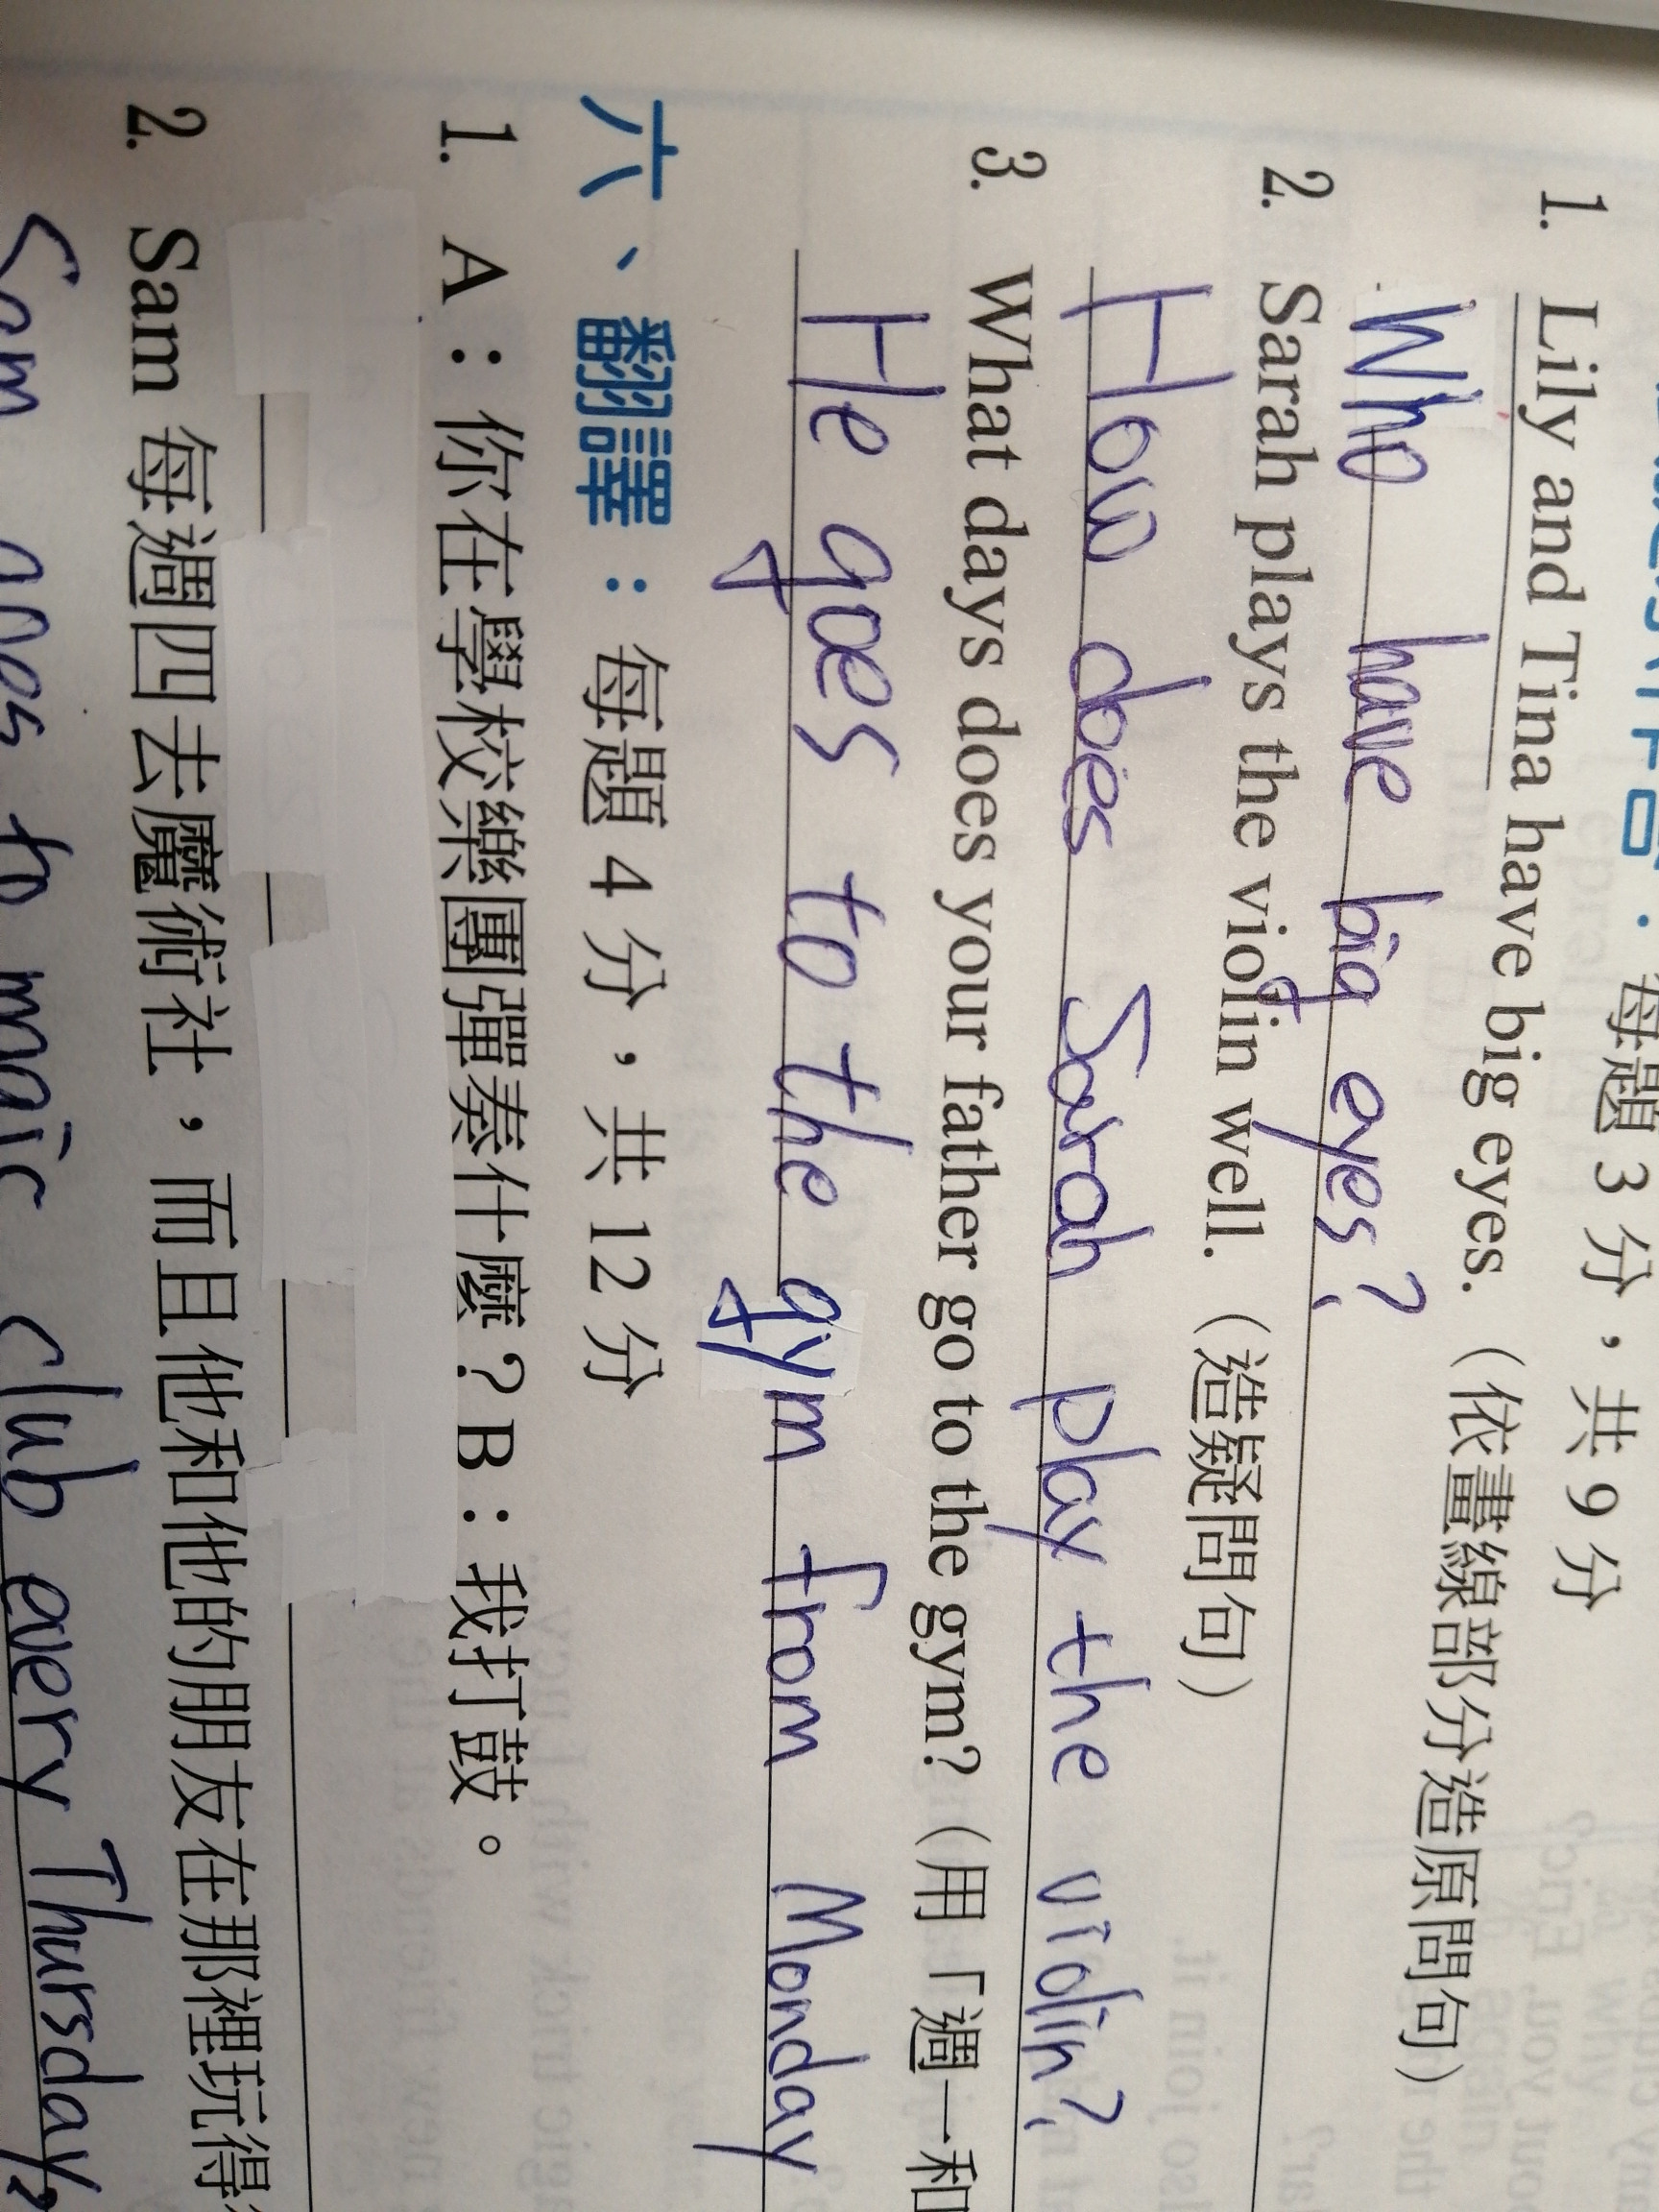 每題 3 分，共 9 分
1. Lily and Tina have big eyes.（依畫線部分造原問句）
Who have big eyes?
2. Sarah plays the violin well.（造疑問句）
How does Sarah play the violin?
3. What days does your father go to the gym?（用「週一和
He goes to the gym from Monday
六、翻譯：每題 4 分，共 12 分
1. A：你在學校樂團彈奏什麼？B：我打鼓。
2. Sam 每週四去魔術社，而且他和他的朋友在那裡玩得
Sam goes to magic club every Thursday,